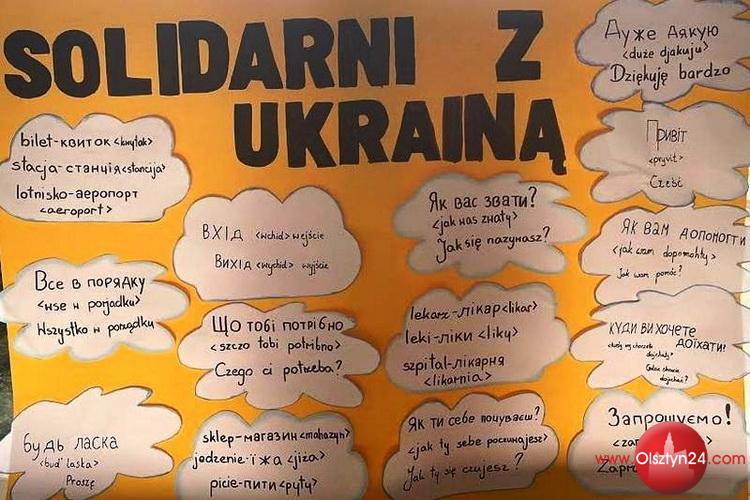 SOLIDARNI Z
UKRAINĄ
Дуже дякую
<duże djakuju>
Dziękuję bardzo
bilet-квиток <kwytok>
stacja-станція <stancija>
lotnisko-аеропорт
<aeroport>
Привіт
<pryvit>
Cześć
ВХІД <wchid> wejście
ВИХІД <wychid> wyjście
Як вас звати?
<jak was zwaty>
Jak się nazywasz?
ЯК ВАМ ДОПОМОГТИ
<jak wam dopomohty>
Jak wam pomóc?
Все в порядку
<wse w porjadku>
Wszystko w porządku
Що тобі потрібно
<szczo tobi potribno>
Czego ci potrzeba?
lekarz-лікар <likar>
leki-ліки <liky>
szpital-лікарня
<likarnia>
КУДИ ВИ ХОЧЕТЕ
ДОЇХАТИ?
Gdzie chcecie
dojechać?
будь ласка
<bud' laska>
Proszę
sklep-магазин <mahazyn>
jedzenie-їжа <jiża>
picie-пити <pyty>
Як ти себе почуваєш?
<jak ty sebe poczuwajesz>
Jak ty się czujesz?
Запрошуємо!
www.Olsztyn24.com